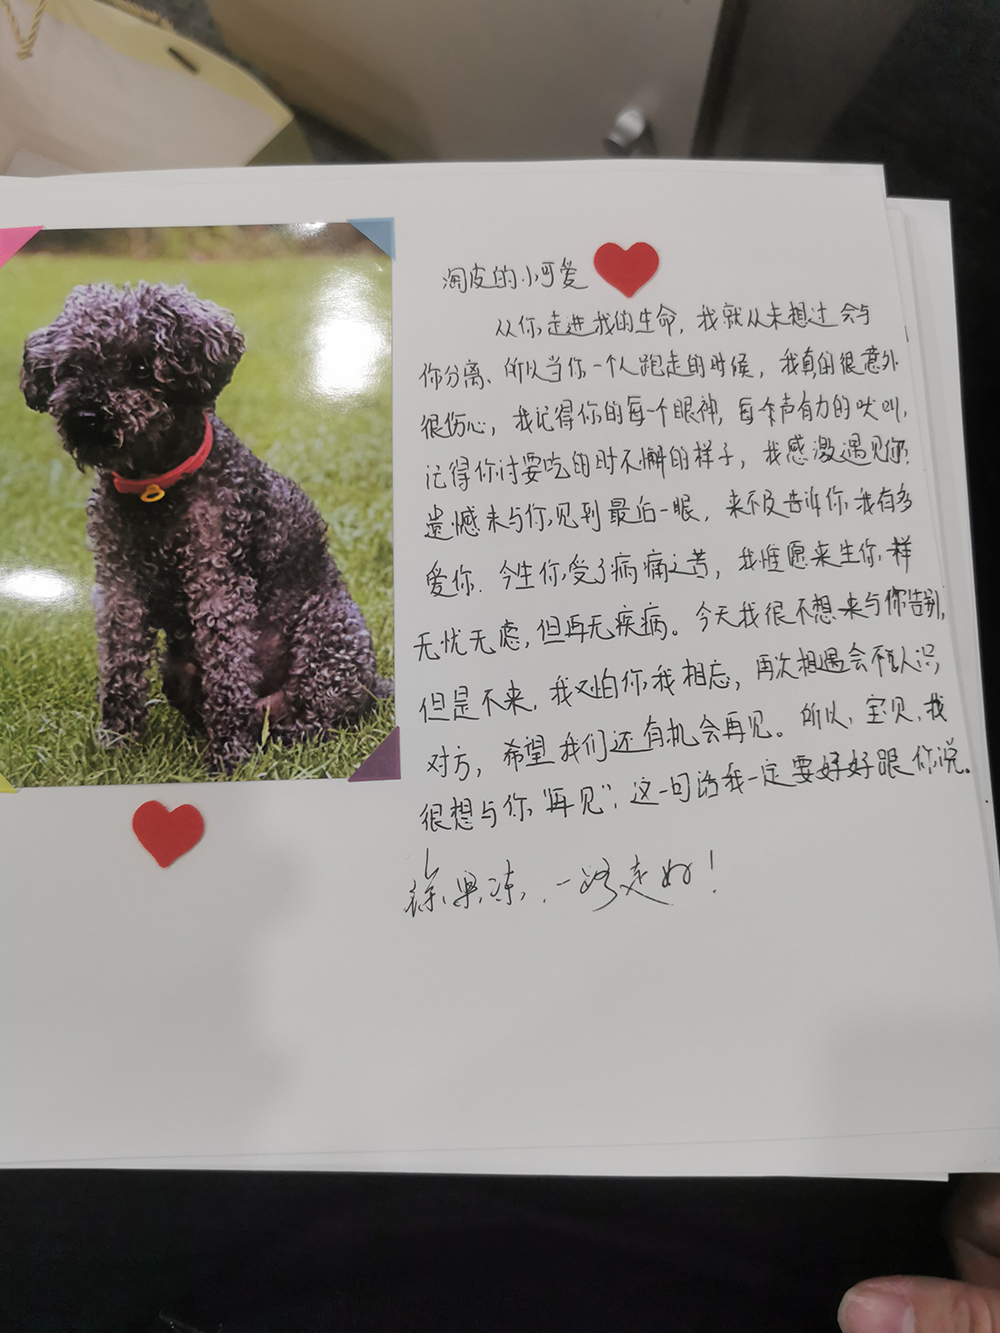 淘皮的小可爱
从你走进我的生命，我就从未想过会与
你分离、所以当你一个人跑走的时候，我真的很意外
很伤心，我记得你的每一个眼神，每个声有力的吠叫，
记得你讨要吃的时不懈的样子，我感激遇见你，
遗憾未与你见到最后一眼，来不及告诉你我有多
爱你．今生你受了病痛之苦，我惟愿来生你一样
无忧无虑，但再无疾病。今天我很不想来与你告别，
但是不来，我又怕你我相忘，再次相遇会不认识
对方，希望我们还有机会再见。所以，宝贝，我
很想与你"再见"，这一句话我一定要好好跟你说。
徐果冻，一路走好！